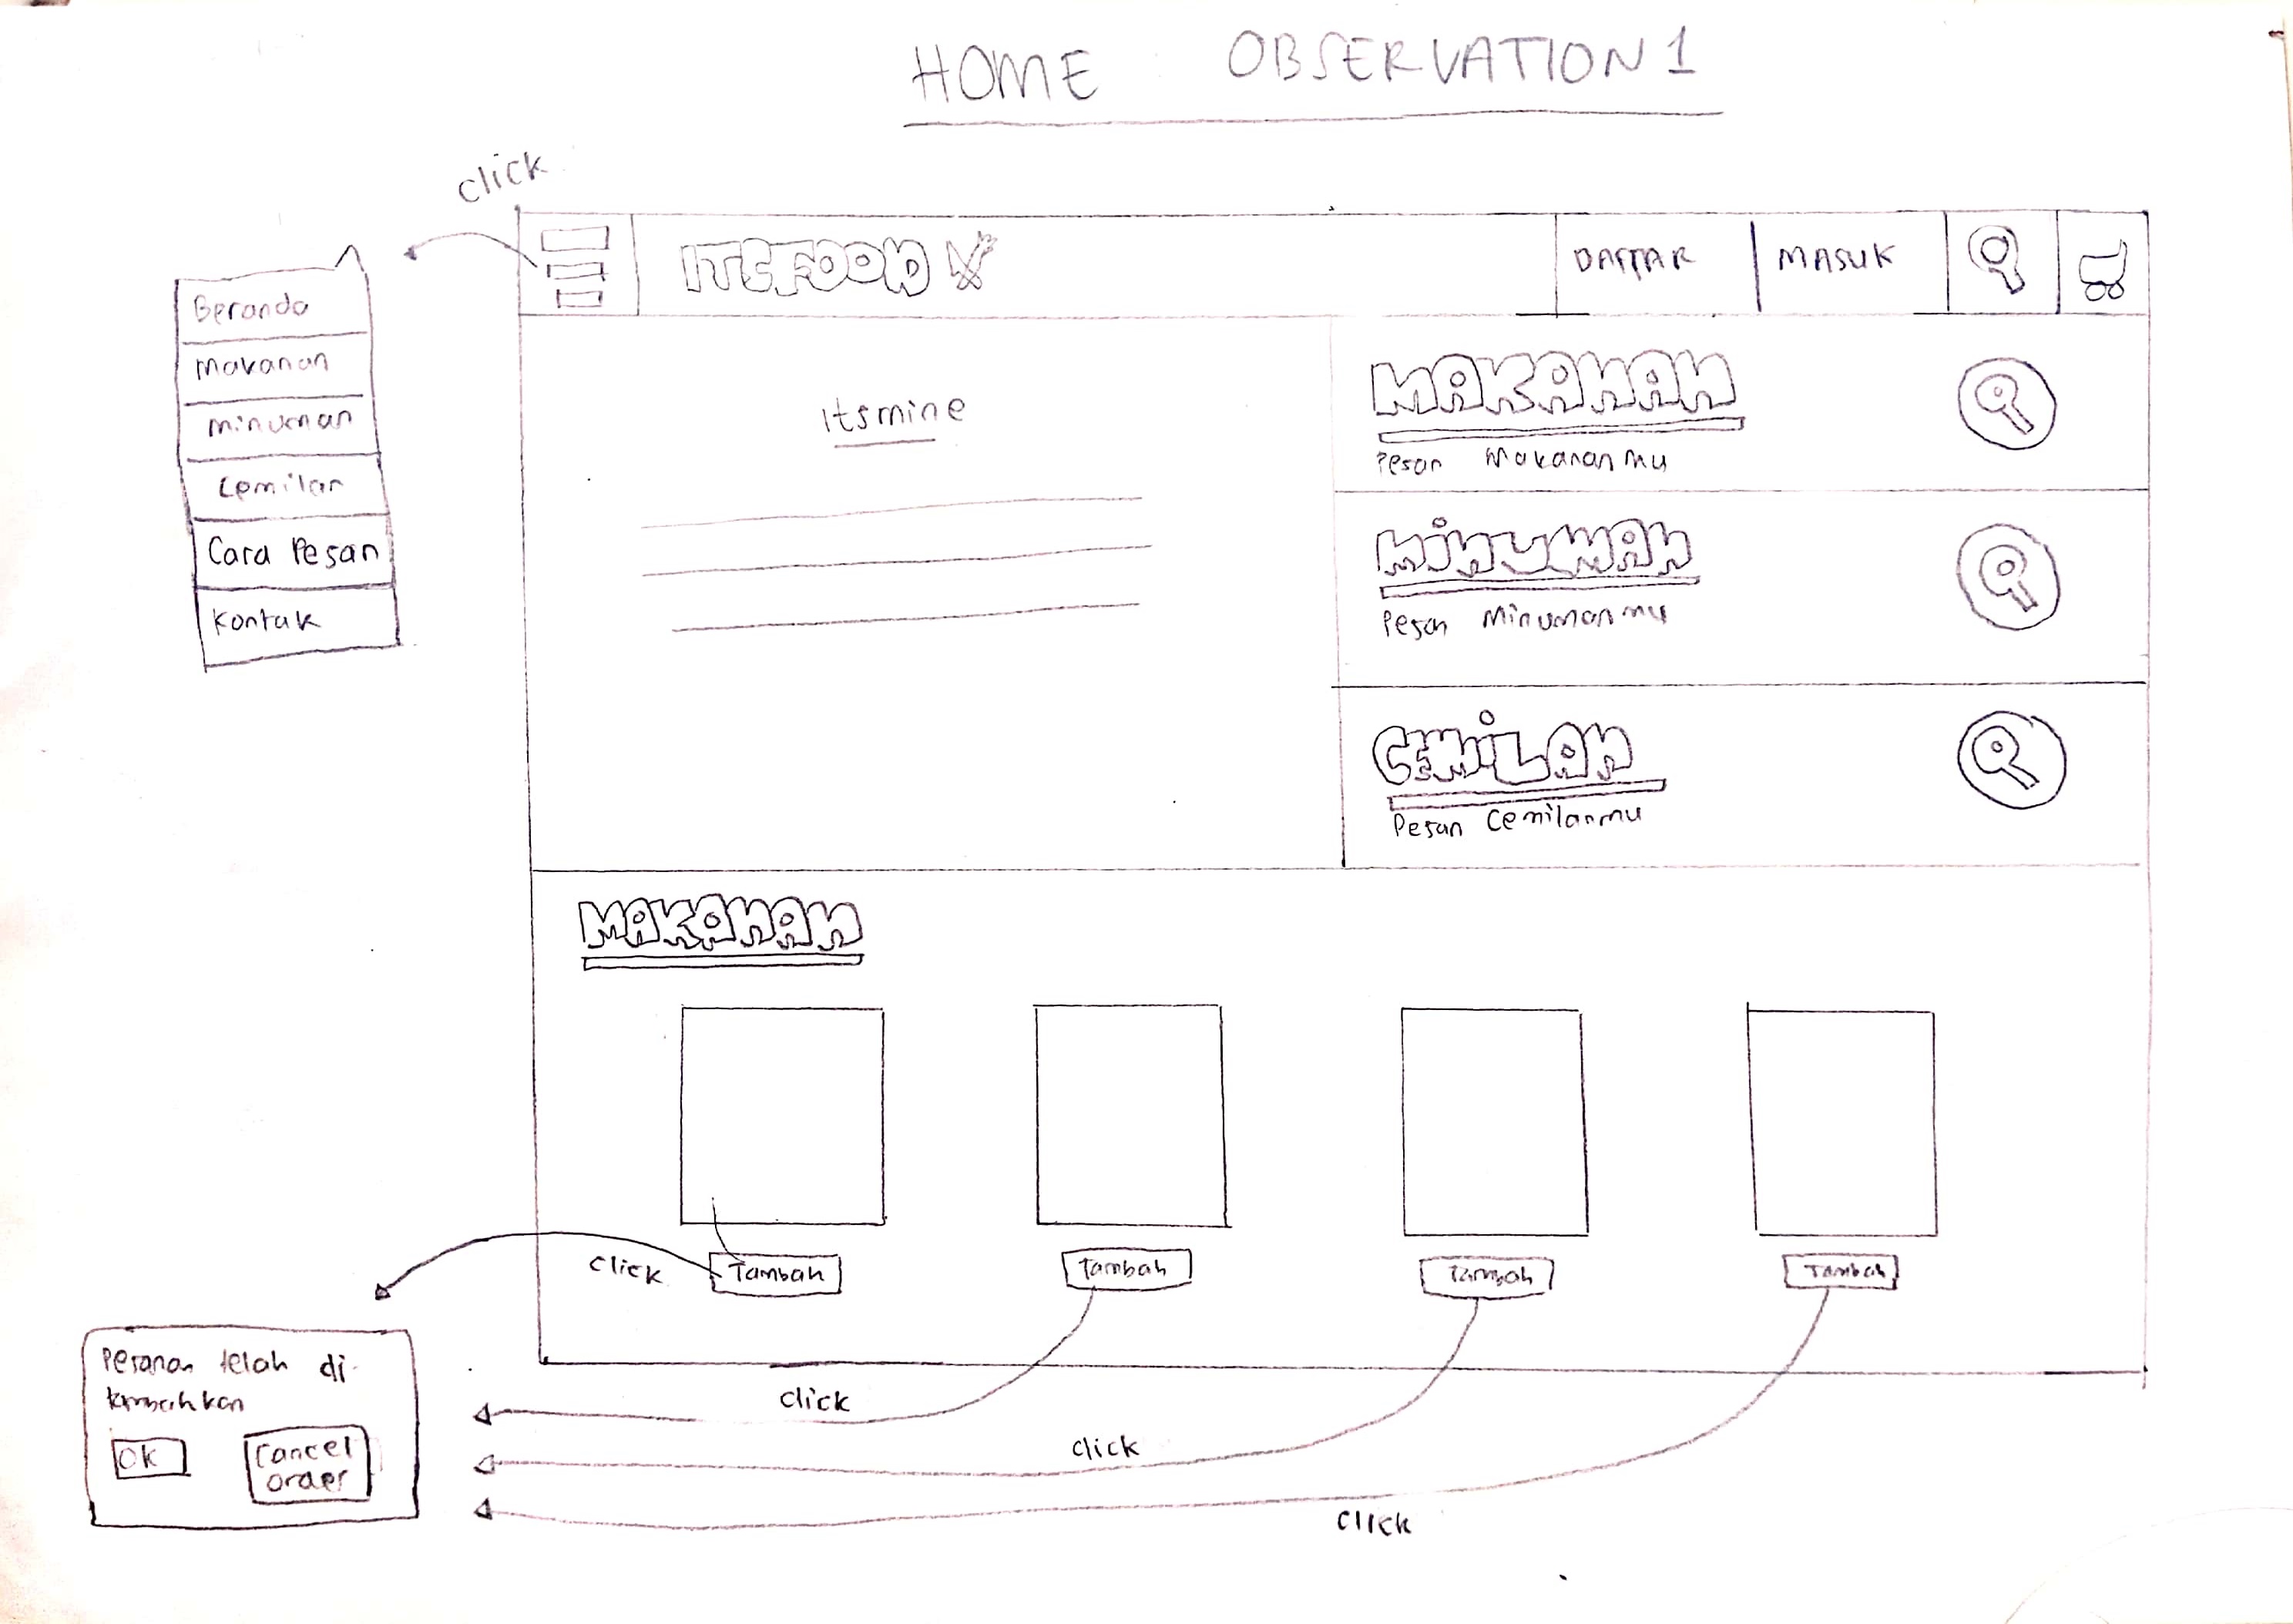 HOME OBSERVATION 1
click
ITEFOOD
DAFTAR
MASUK
Beranda
Makanan
Minuman
Cemilan
Cara Pesan
Kontak
Itsmine
MAKANAN
Pesan Makananmu
MiNUMAN
Pesan Minumanmu
CEMiLAN
Pesan Cemilanmu
MAKANAN
click
Tambah
Tambah
Tambah
Tambah
Pesanan telah di
tambahkan
OK
Cancel
order
click
click
click